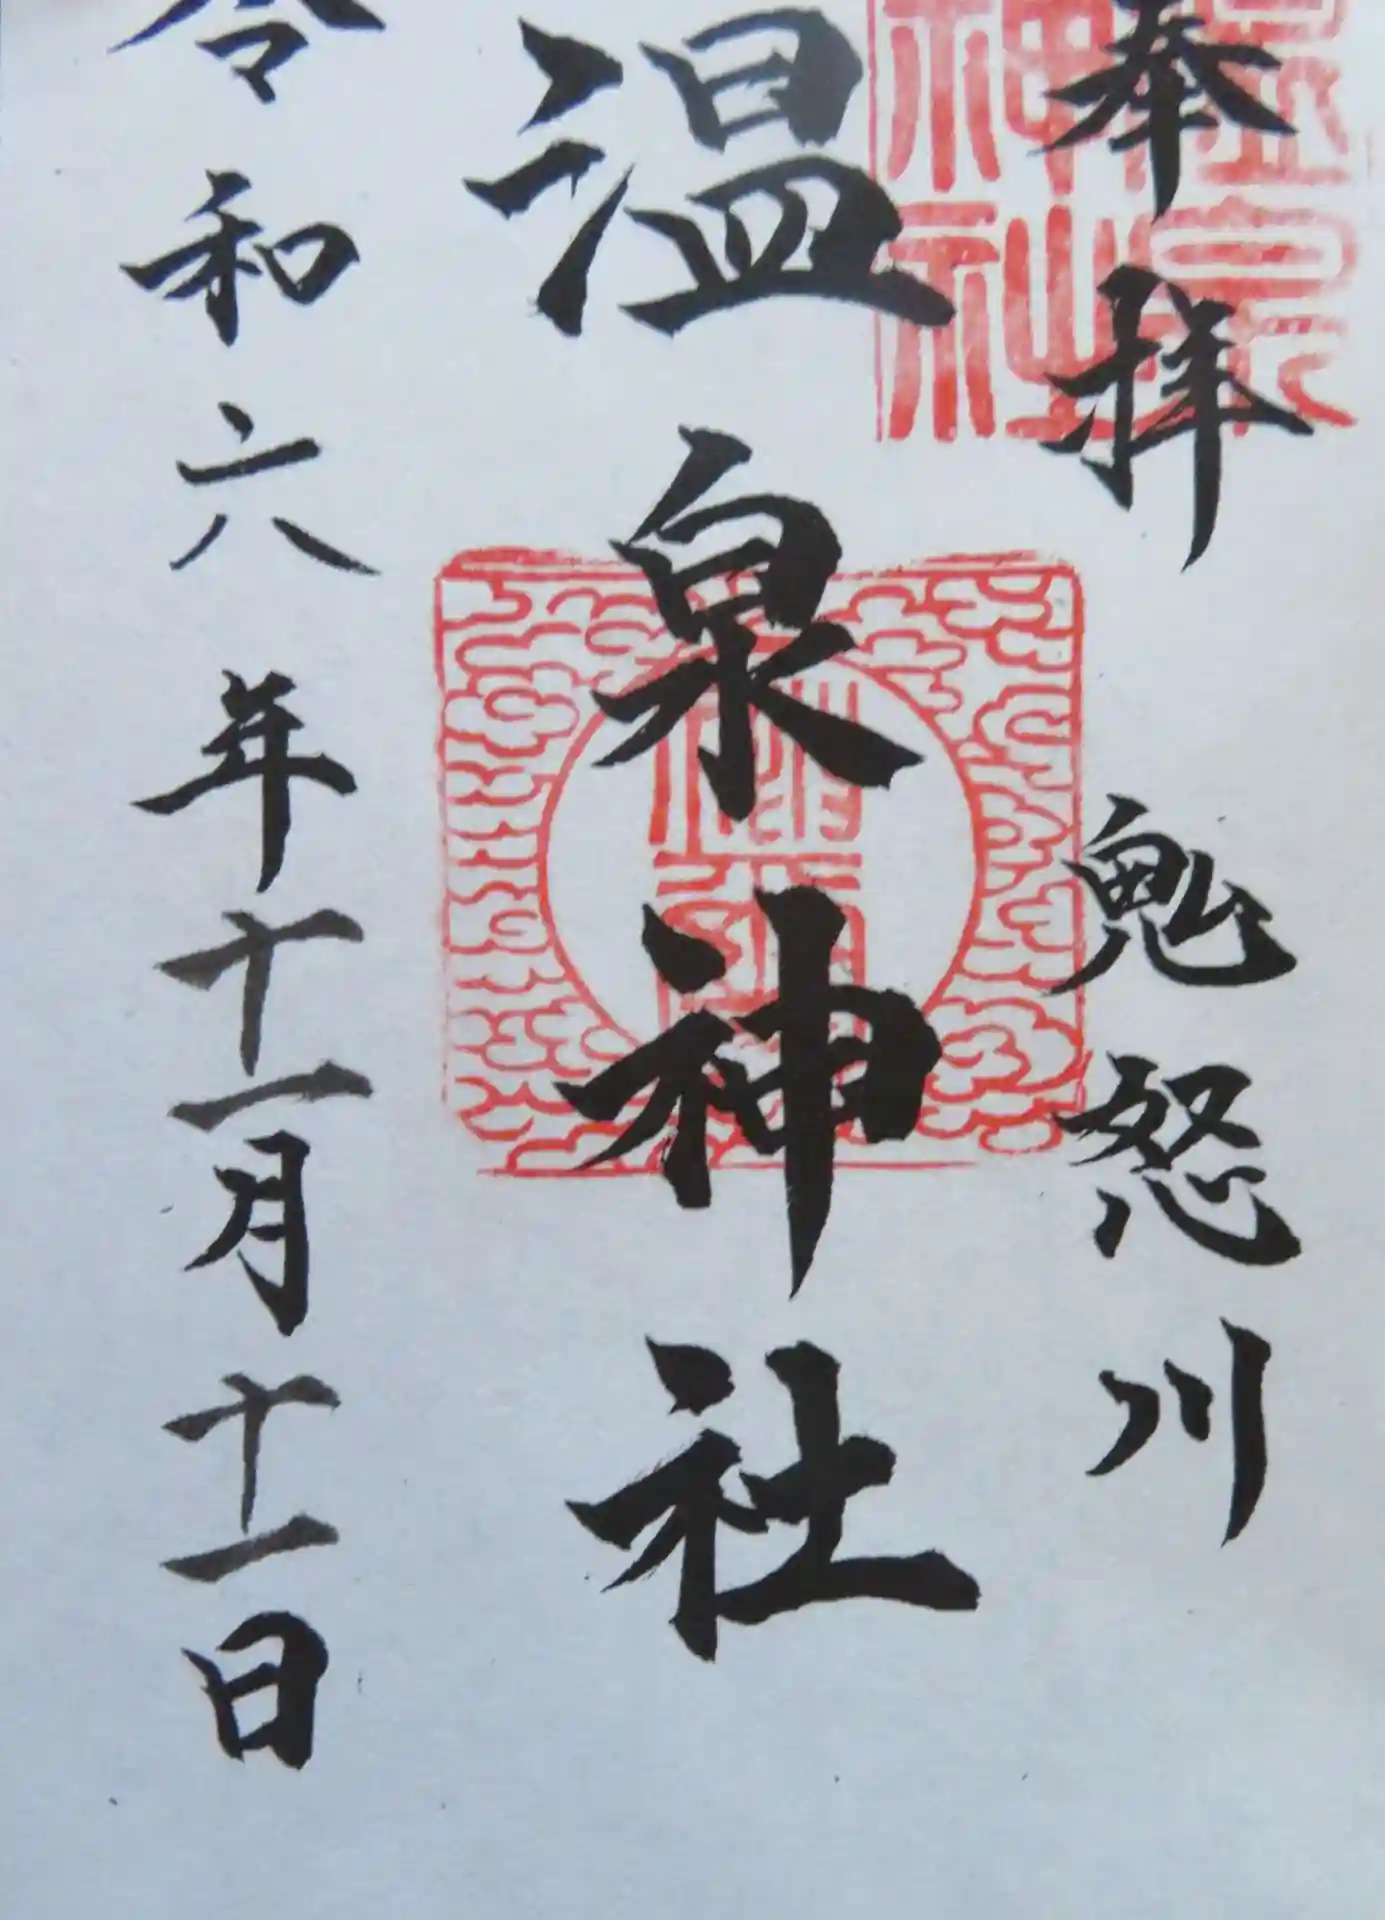 奉拝 鬼怒川
温泉神社
令和六年十一月十一日
温泉
神社